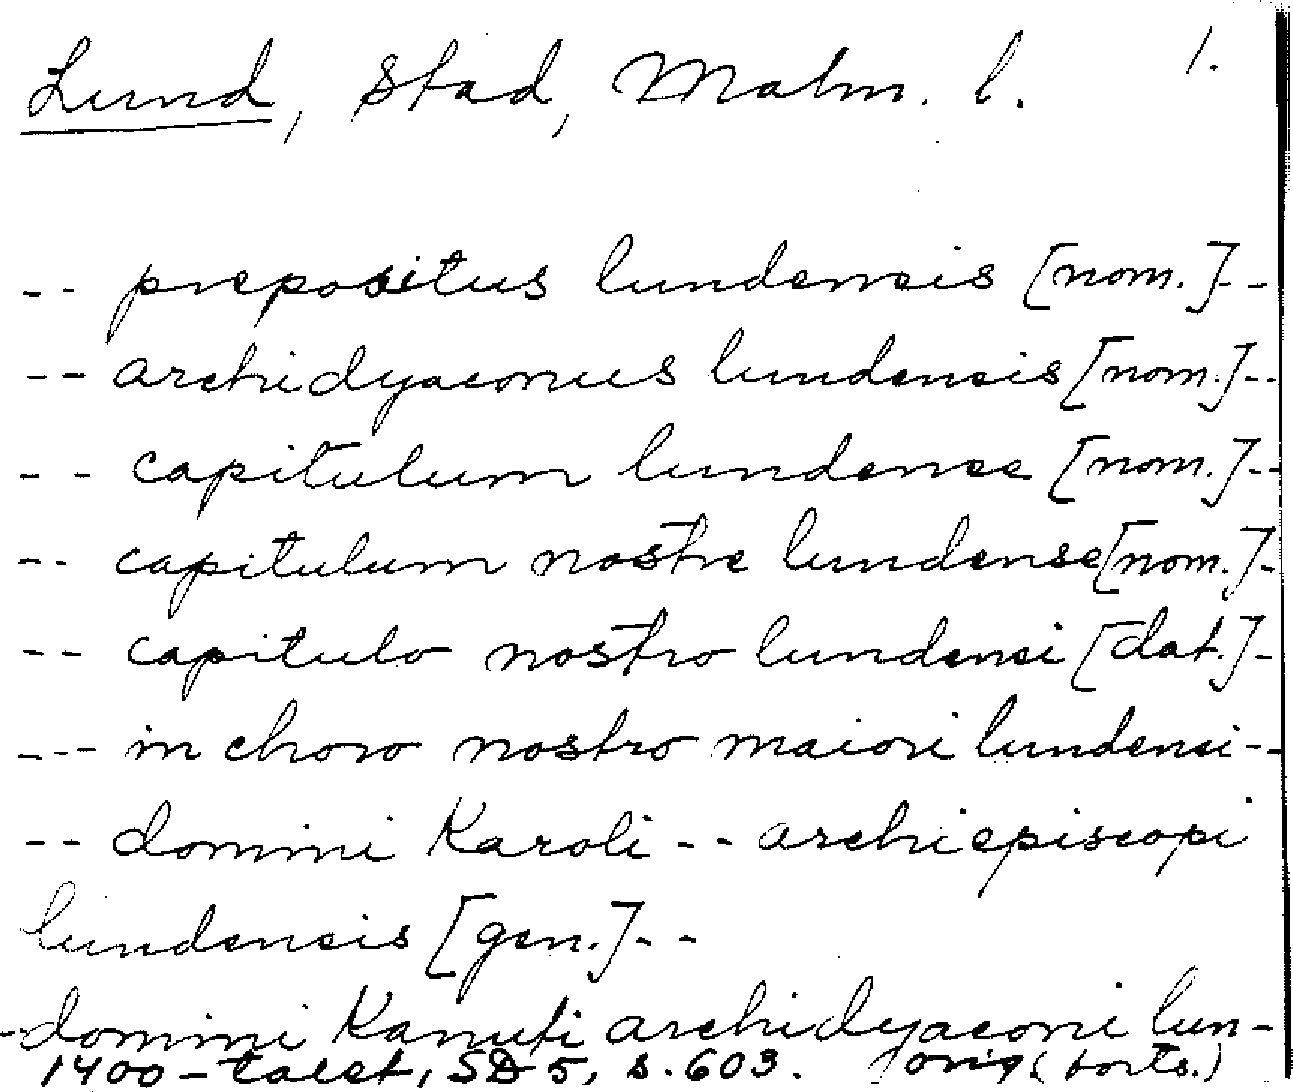 Lund, Stad, Malm. l. 1.
-- prepositus lundensis [nom.]--
-- archidyaconus lundensis [nom.]--
-- capitulum lundense [nom.]--
-- capitulum nostre lundense [nom.]-
-- capitulo nostro lundensi [dat.]-
--- in choro nostro maiori lundensi--
-- domini Karoli -- archiepiscopi
lundensis [gen.]--
-domini Kanuti archidyaconi lun-
1400-talet, SD 5, s. 603. orig (forts.)